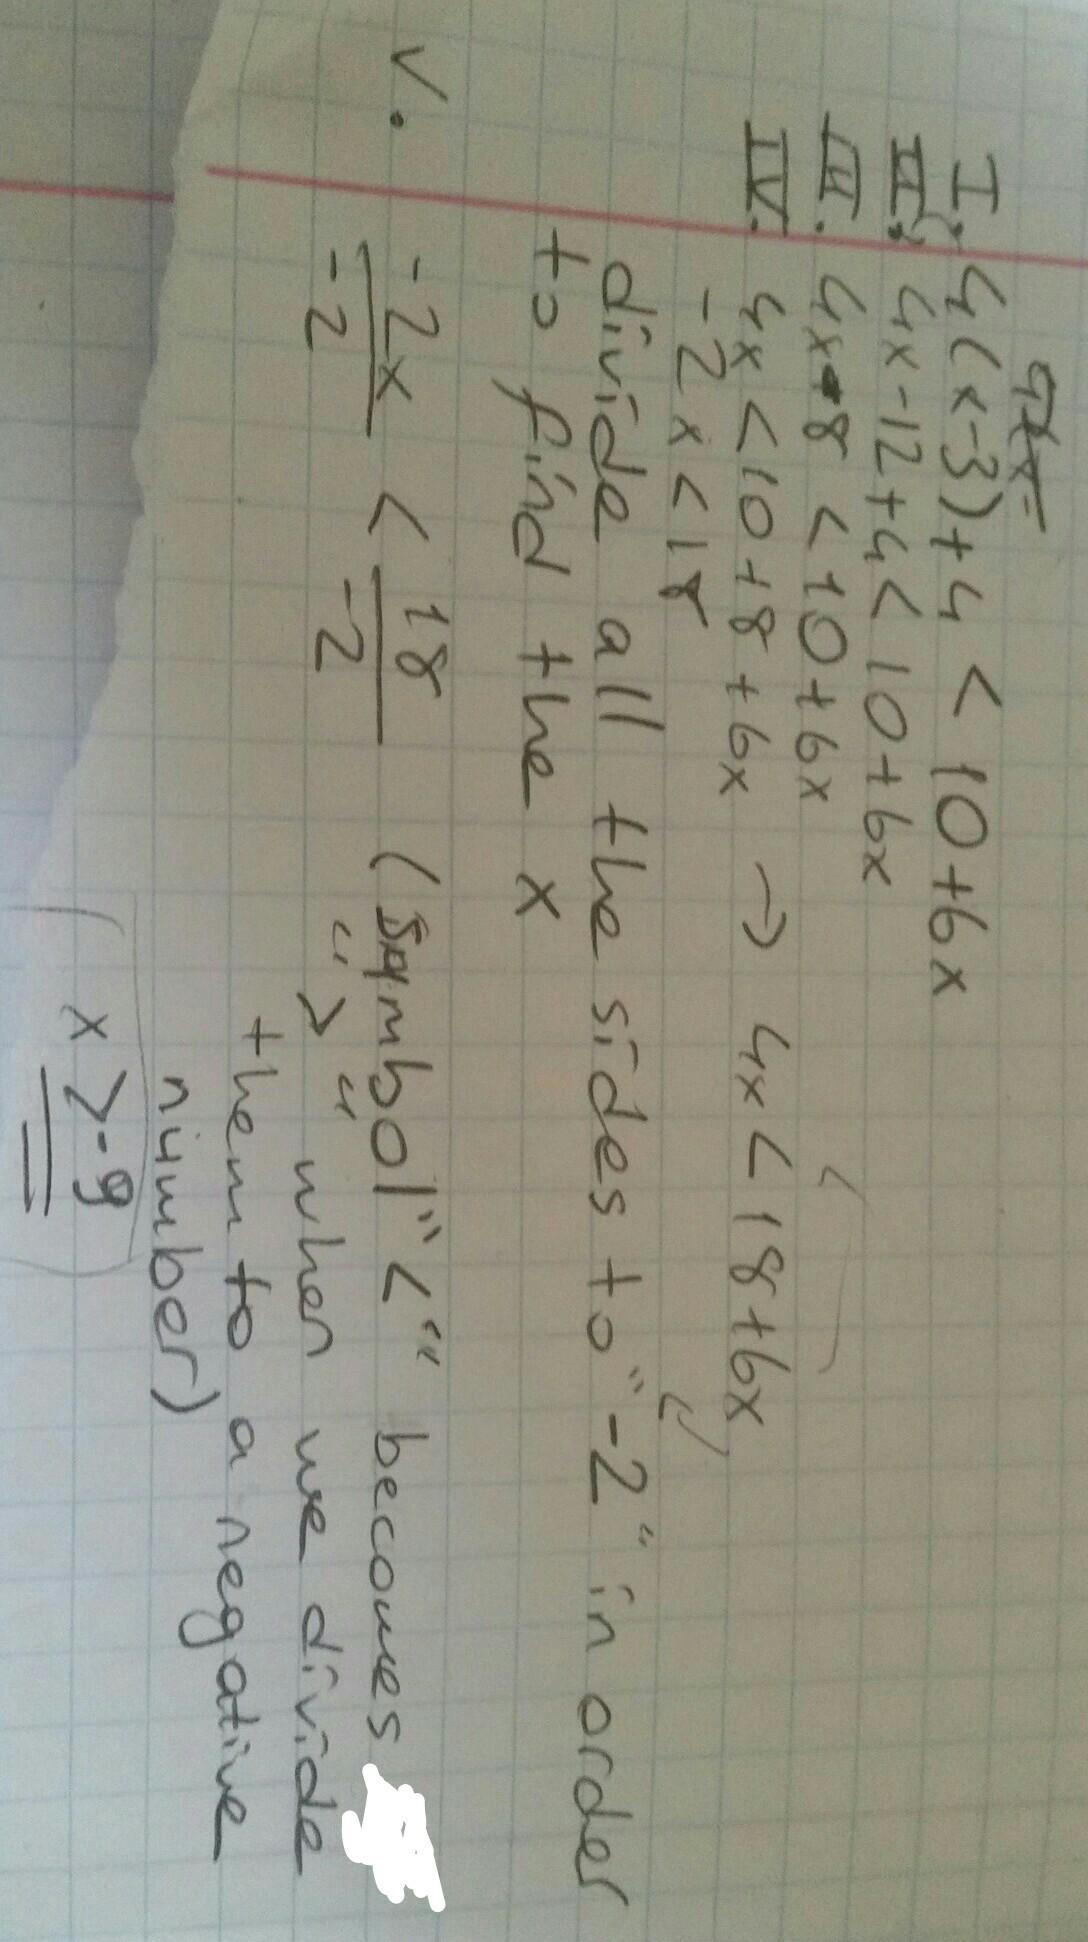 I. 4(x-3)+4 < 10+6x
II. 4x-12+4 < 10+6x
III. 4x-8 < 10+6x
IV. 4x < 10+8+6x → 4x < 18+6x
-2x < 18
divide all the sides to "-2" in order
to find the x
V. -2x/-2 < 18/-2 (symbol "<" becomes
">" when we divide
them to a negative
number)
x > -9